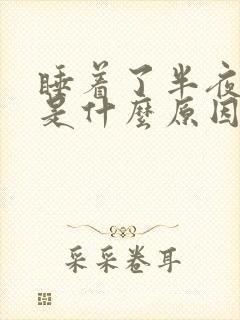 睡着了半夜
是什麼原因
采采卷耳